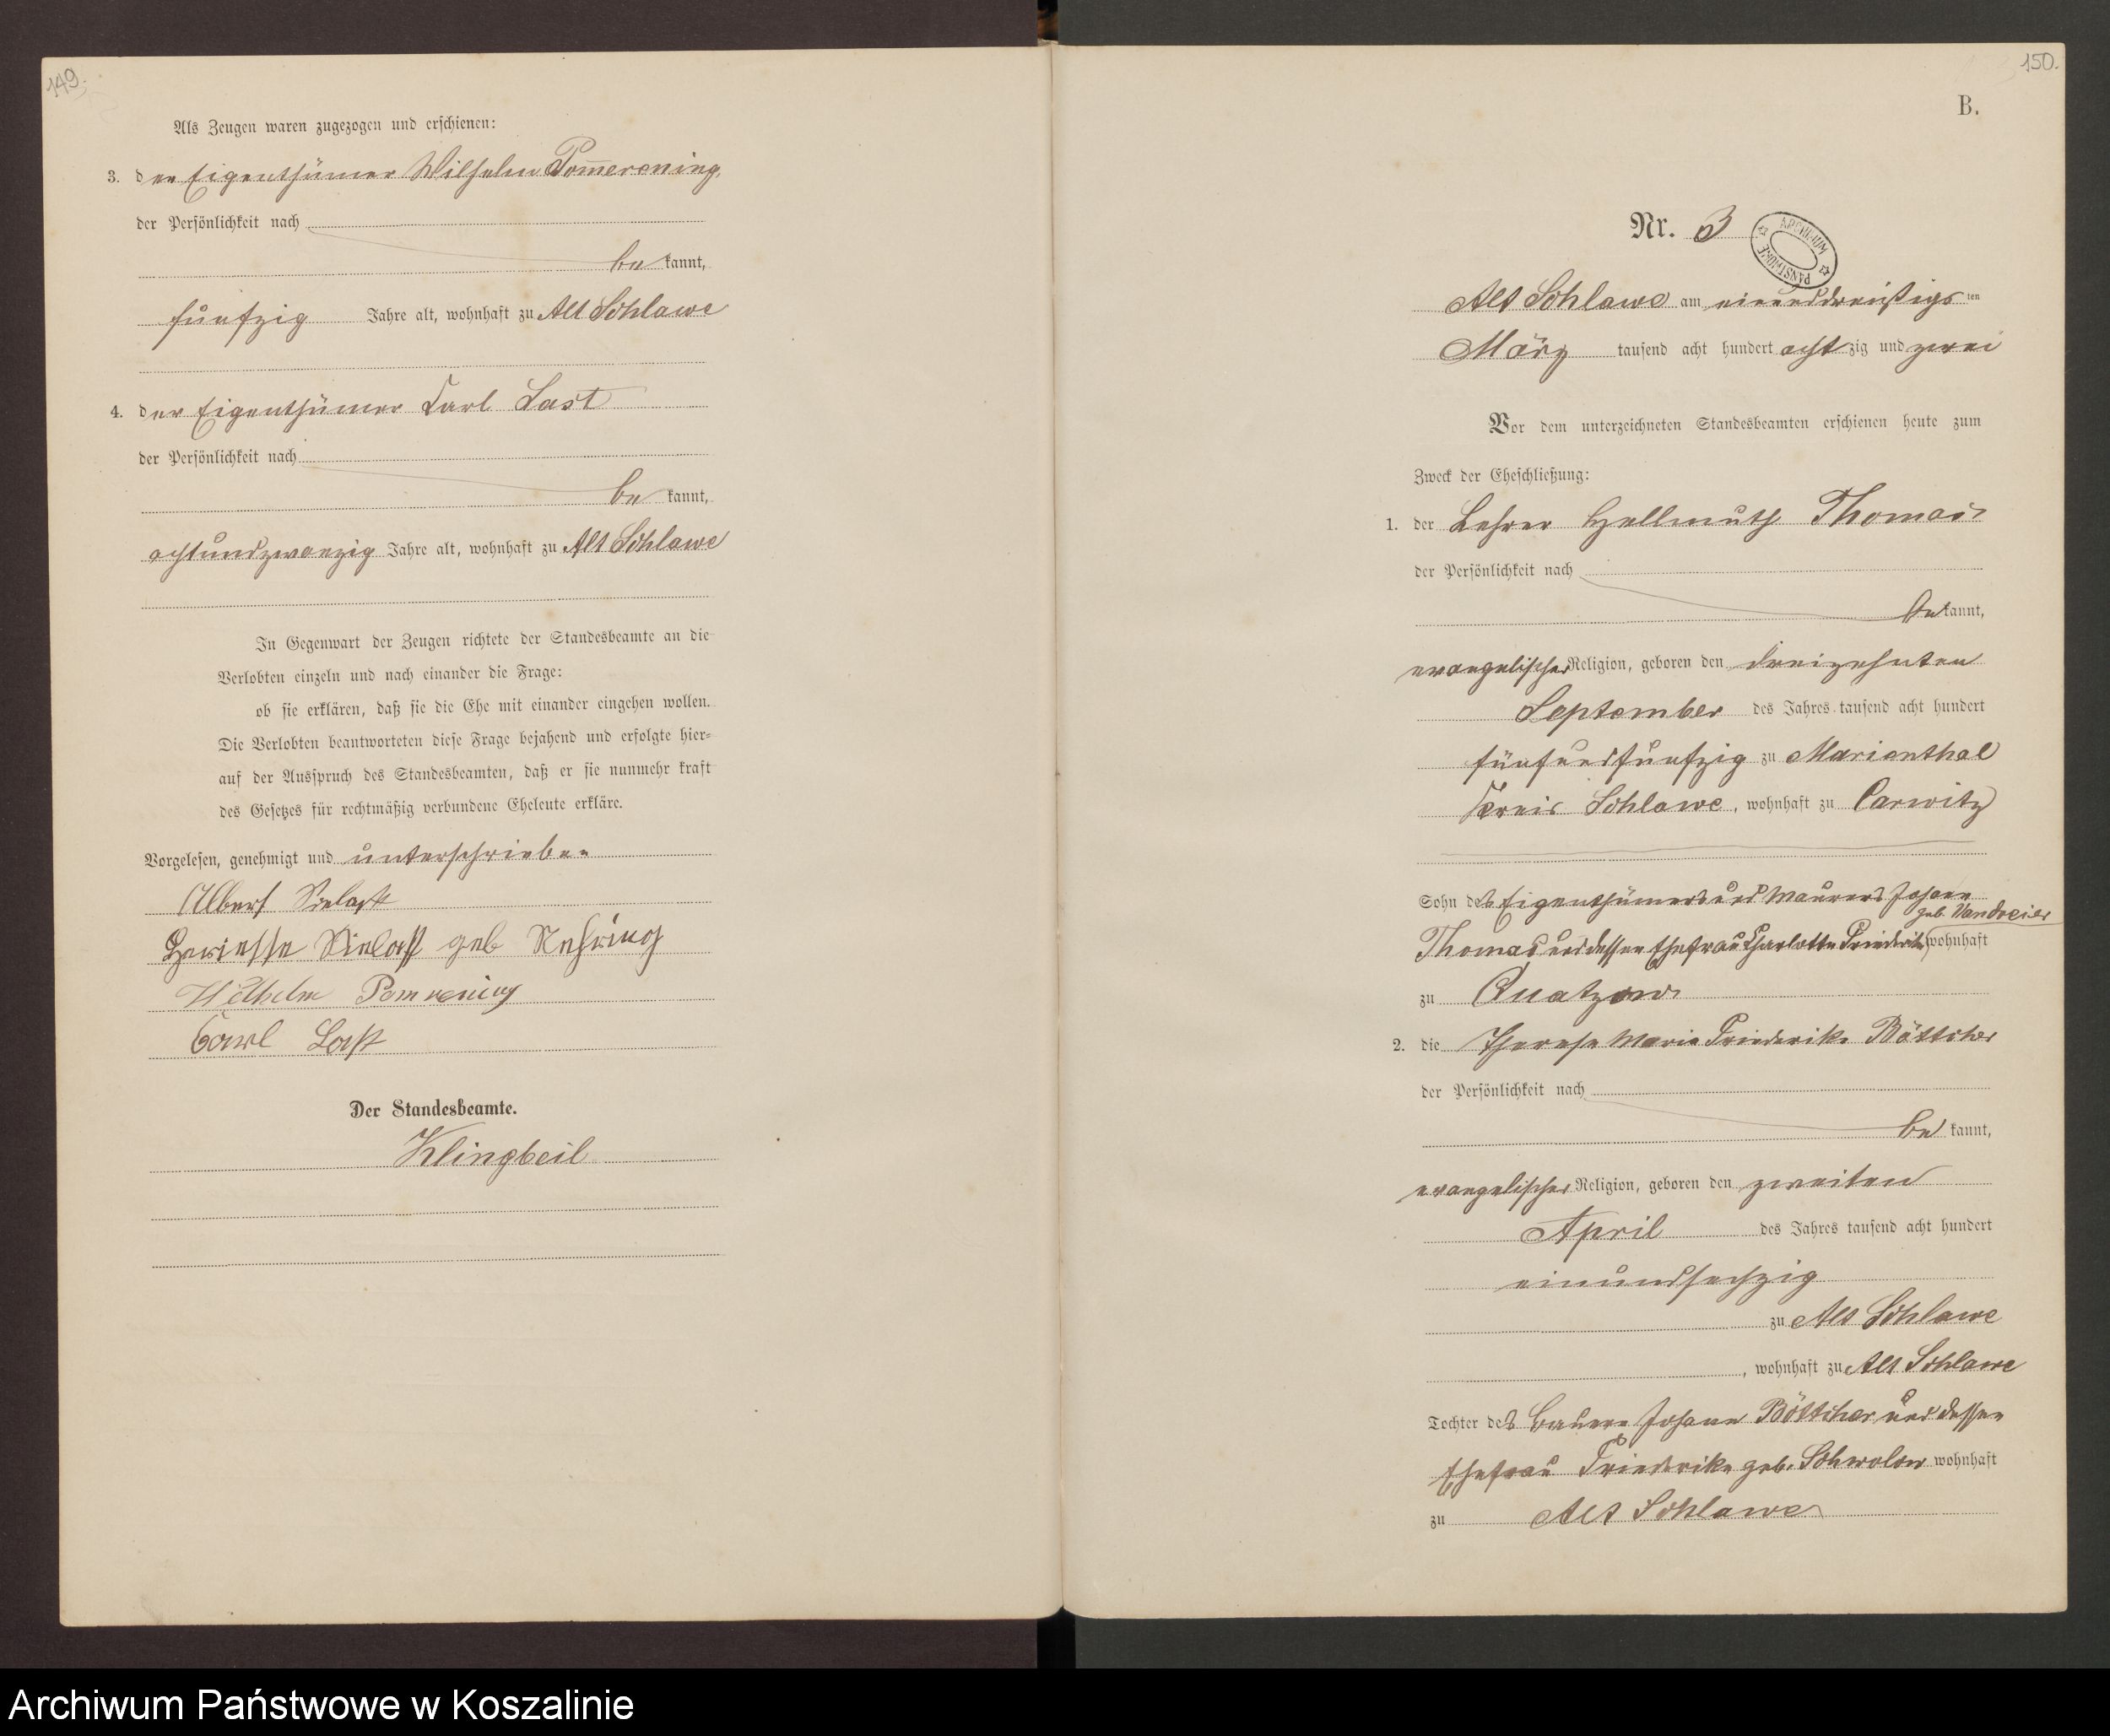 149.
Als Zeugen waren zugezogen und erschienen:
3. der Eigenthümer Wilhelm Pom̅erening,
der Persönlichkeit nach
be kannt,
fünfzig Jahre alt, wohnhaft zu Alt Schlawe
4. der Eigenthümer Carl Last
der Persönlichkeit nach
be kannt,
achtundzwanzig Jahre alt, wohnhaft zu Alt Schlawe
In Gegenwart der Zeugen richtete der Standesbeamte an die
Verlobten einzeln und nach einander die Frage:
ob sie erklären, daß sie die Ehe mit einander eingehen wollen.
Die Verlobten beantworteten diese Frage bejahend und erfolgte hier-
auf der Ausspruch des Standesbeamten, daß er sie nunmehr kraft
des Gesetzes für rechtmäßig verbundene Eheleute erkläre.
Vorgelesen, genehmigt und unterschrieben
Albert Sielaff
Sielaff geb Nehring
Wilhelm Pommerening
Carl Last
Der Standesbeamte.
Klingbeil
150.
B.
Nr. 3
ARCHIWUM PAŃSTWOWE
Alt Schlawe am einunddreißigs ten
März tausend acht hundert acht zig und zwei
Vor dem unterzeichneten Standesbeamten erschienen heute zum
Zweck der Eheschließung:
1. der Lehrer Hellmuth Thomas
der Persönlichkeit nach
be kannt,
evangelischer Religion, geboren den dreizehnten
September des Jahres tausend acht hundert
fünfundfünfzig zu Marienthal
Kreis Schlawe, wohnhaft zu Carwitz
Sohn des Eigenthümers und Maurers Johann
geb. Vandreier
Thomas und dessen Ehefrau Charlotte Friederike wohnhaft
zu Quatzow
2. die Therese Marie Friederike Böttcher
der Persönlichkeit nach
be kannt,
evangelischer Religion, geboren den zweiten
April des Jahres tausend acht hundert
einundsechzig
zu Alt Schlawe
, wohnhaft zu Alt Schlawe
Tochter des Bauern Johann Böttcher und dessen
Ehefrau Friederike geb. Schwolow wohnhaft
zu Alt Schlawe
Archiwum Państwowe w Koszalinie